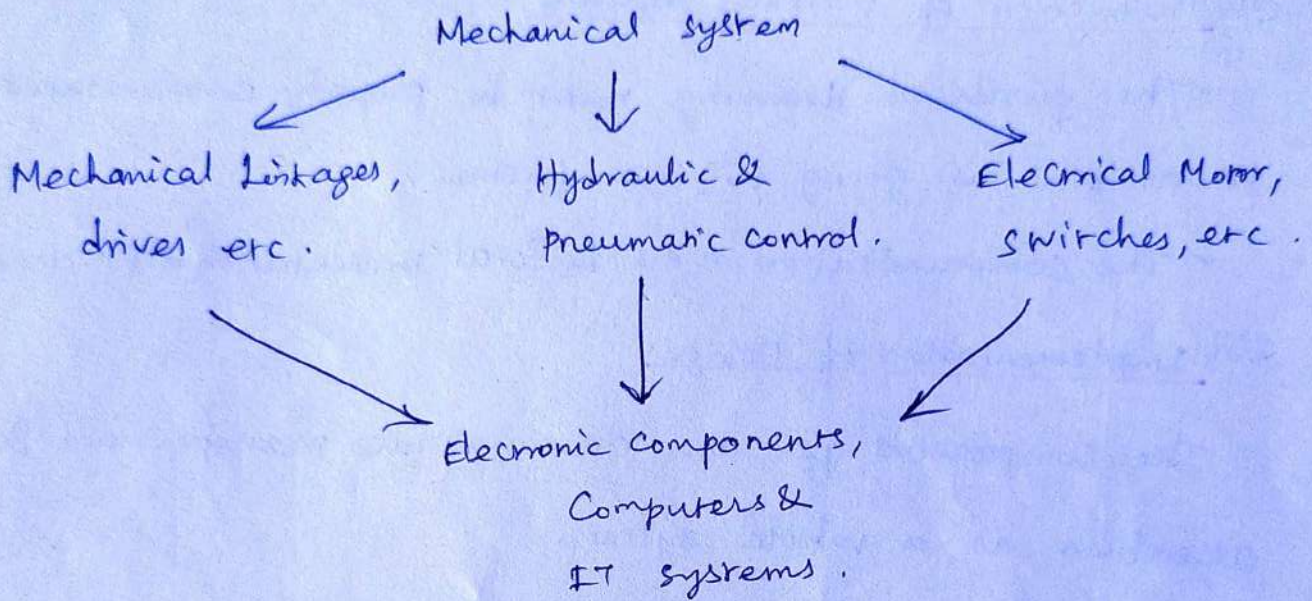 Mechanical system
Mechanical Linkages,
drives etc.
Hydraulic &
pneumatic control.
Electrical Motor,
switches, etc.
Electronic components,
Computers &
IT systems.